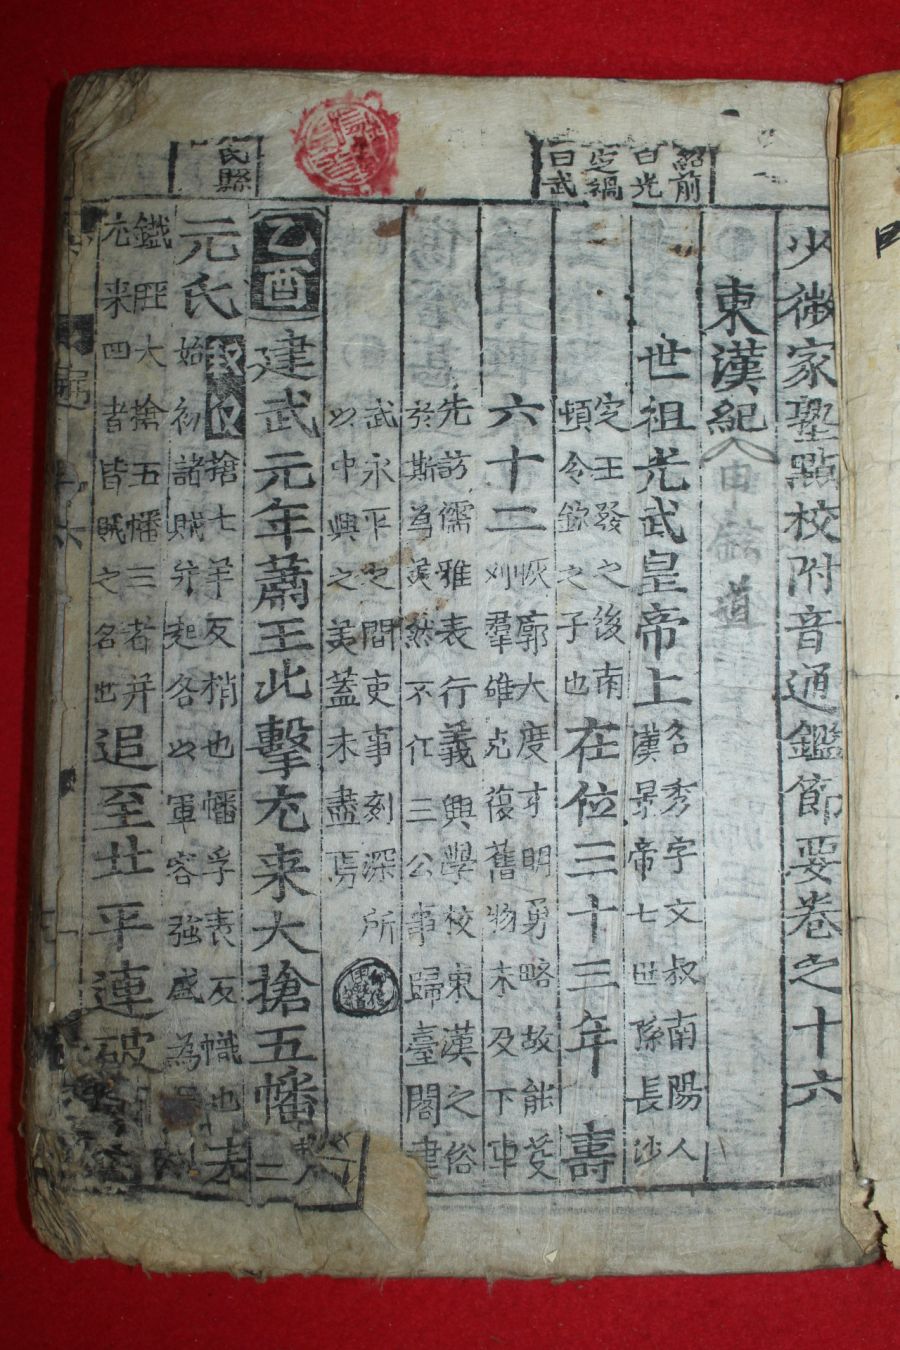 紹前
曰光
定禍
曰武
氏縣
少微家塾點校附音通鑑節要卷之十六
東漢紀
世祖光武皇帝上
名秀字文叔南陽人
漢景帝七世孫長沙
定王發之後南
頓令欽之子也
在位三十三年
壽
六十二
恢廓大度才明勇略故能芟
刈羣雄克復舊物未及下車
先訪儒雅表行義興學校東漢之俗
於斯爲美然不任三公事歸臺閣建
武永平之間吏事刻深所
以中興之美蓋未盡焉
乙酉
建武元年蕭王北擊尤来大搶五幡
元氏
釋義
搶七羊反梢也幡孚袁反幟也
始初諸賊並起各以軍容強盛為
鐵脛大搶五幡三者并
尤来四者皆賊之名也
追至北平連破